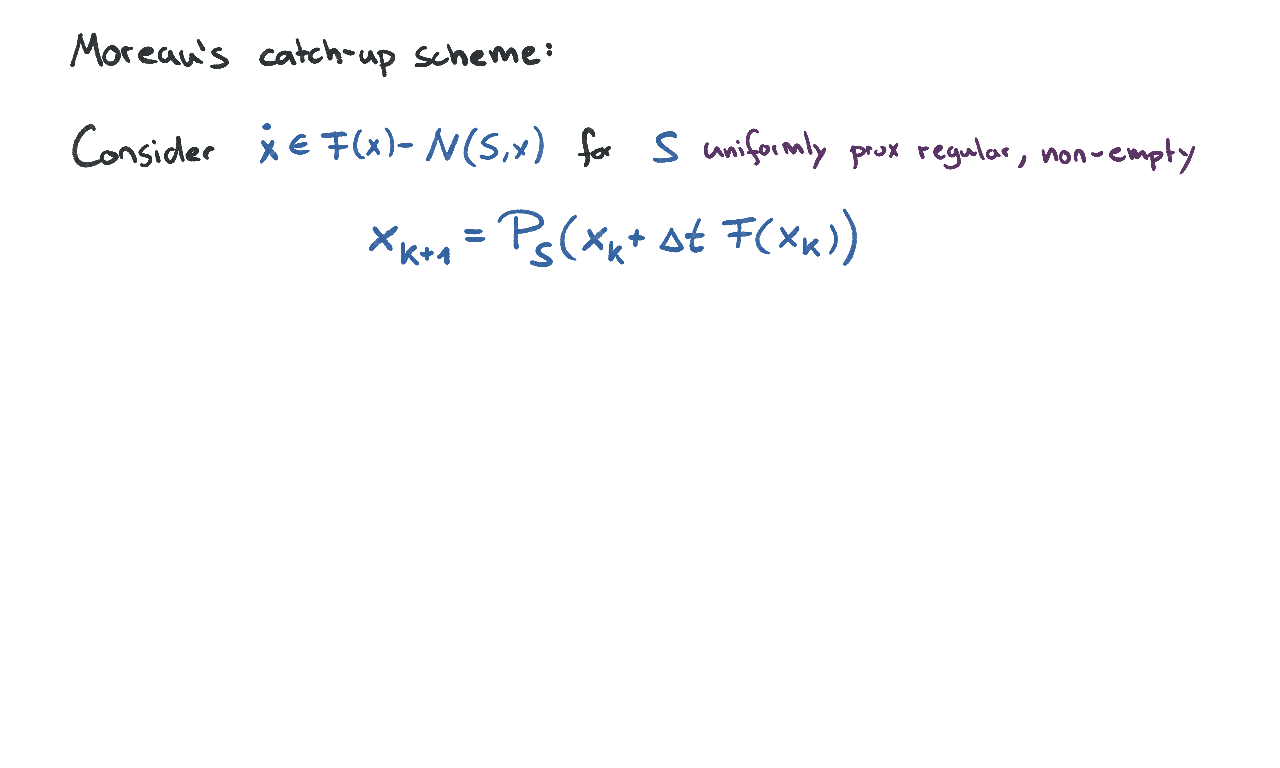 Moreau's catch-up scheme:
Consider ẋ ∈ F(x) - N(S,x) for S uniformly prox regular, non-empty
x_{k+1} = P_S(x_k + Δt F(x_k))